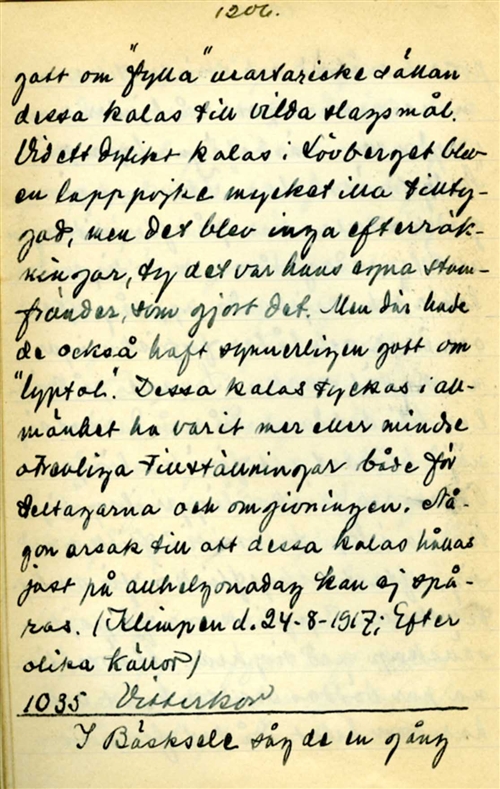 1206.
gott om "fylla" urartar icke sällan
dessa kalas till vilda slagsmål.
Vid ett dylikt kalas i Lövberget blev
en lapppojke mycket illa tillty-
gad, men det blev inga efterräk-
ningar, ty det var hans egna stam-
fränder, som gjort det. Men där hade
de också haft synnerligen gott om
"lyptol". Dessa kalas tyckas i all-
mänhet ha varit mer eller mindre
otrevliga tillställningar både för
deltagarna och omgivningen. Nå-
gon orsak till att dessa kalas hållas
just på allhelgonadag kan ej spå-
ras. (Klimpen d. 24-8-1917; Efter
olika källor)
1035 Vitterkor
I Bäsksele såg de en gång